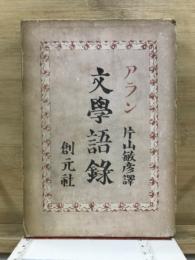 アラン
文學語錄
片山敏彦譯
創元社